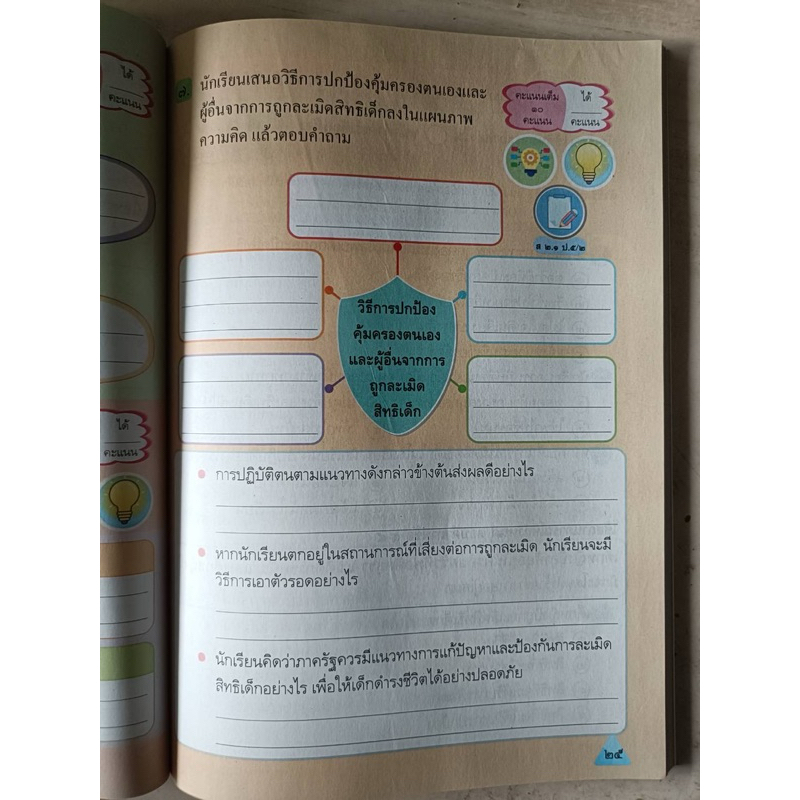 ได้
คะแนน
ได้
คะแนน
๗. นักเรียนเสนอวิธีการปกป้องคุ้มครองตนเองและ
ผู้อื่นจากการถูกละเมิดสิทธิเด็กลงในแผนภาพ
ความคิด แล้วตอบคำถาม
คะแนนเต็ม
๑๐
คะแนน
ได้
คะแนน
ส ๒.๑ ป.๕/๒
วิธีการปกป้อง
คุ้มครองตนเอง
และผู้อื่นจากการ
ถูกละเมิด
สิทธิเด็ก
การปฏิบัติตนตามแนวทางดังกล่าวข้างต้นส่งผลดีอย่างไร
หากนักเรียนตกอยู่ในสถานการณ์ที่เสี่ยงต่อการถูกละเมิด นักเรียนจะมี
วิธีการเอาตัวรอดอย่างไร
นักเรียนคิดว่าภาครัฐควรมีแนวทางการแก้ปัญหาและป้องกันการละเมิด
สิทธิเด็กอย่างไร เพื่อให้เด็กดำรงชีวิตได้อย่างปลอดภัย
๒๕